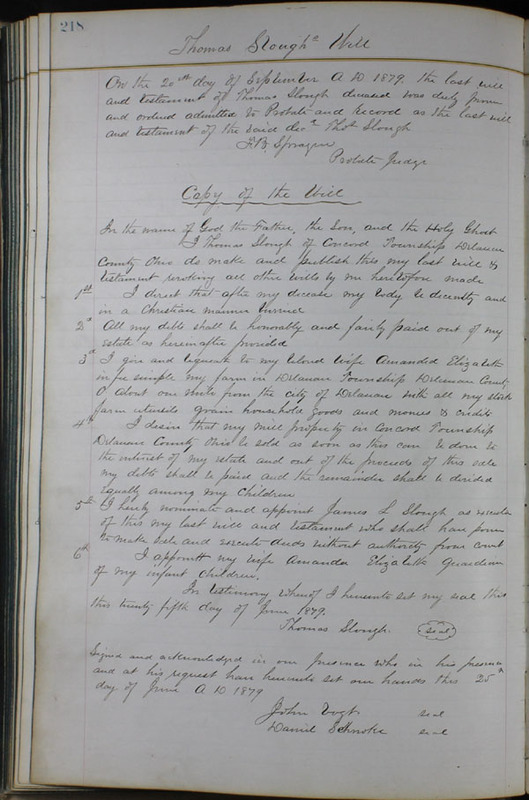 218
Thomas Slough's Will
On the 20th day of September A D 1879. the last will
and testament of Thomas Slough deceased was duly proven
and ordered admitted to Probate and Record as the last will
and testament of the said decd Thos Slough
F. B. Sprague
Probate Judge
Copy of the Will
In the name of God the Father, the Son, and the Holy Ghost
I Thomas Slough of Concord Township Delaware
County Ohio do make and publish this my last will &
testament revoking all other wills by me heretofore made
1st I direct that after my decease my body be decently and
in a Christian manner burried
2d All my debts shall be honorably and fairly paid out of my
estate as hereinafter provided
3d I give and bequeath to my beloved wife Amanded Elizabeth
in fee simple my farm in Delaware Township Delaware County
O about one mile from the city of Delaware with all my stock
farm utensils grain household goods and monies & credits
4th I desire that my mill property in Concord Township
Delaware County Ohio be sold as soon as this can be done to
the interest of my estate and out of the proceeds of this sale
my debts shall be paid and the remainder shall be divided
equally among my children
5th I hereby nominate and appoint James L Slough as executor
of this my last will and testament who shall have power
to make sale and execute deeds without authority from court
6th I appoint my wife Amanda Elizabeth guardian
of my infant children.
In testimony whereof I hereunto set my seal this
this twenty fifth day of June 1879.
Thomas Slough seal
Signed and acknowledged in our presence who in his presence
and at his request have hereunto set our hands this 25th
day of June A D 1879
John Vogt seal
Daniel Schnoke seal